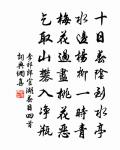 十日春陰到水亭
水邊楊柳一時青
梅花過盡桃花惡
乞取山礬入淨瓶
李祁郎官湖春日四首
詞典網